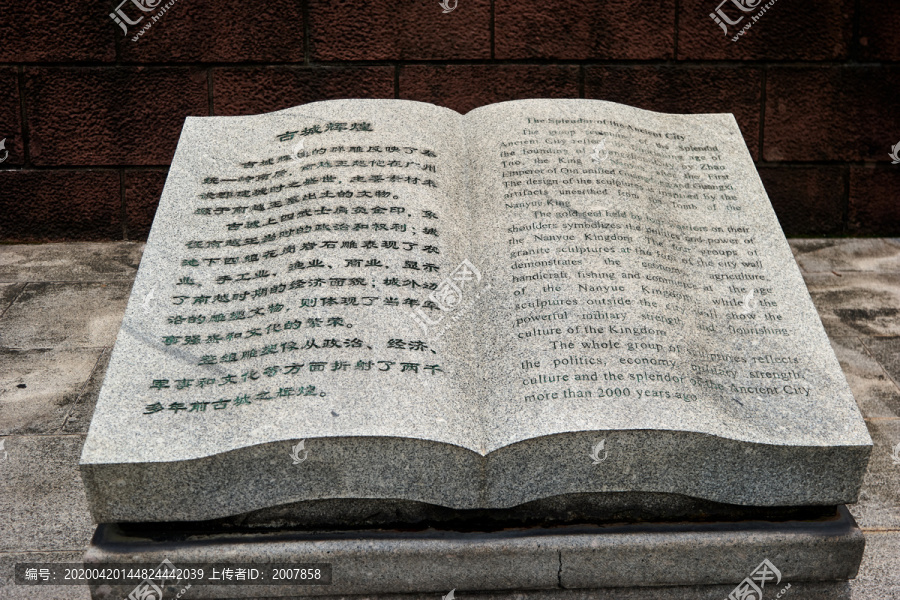 古城辉煌
古城辉煌的群雕反映了秦
统一岭南后,南越王赵佗在广州
源于南越王墓出土的文物。
古城上四武士肩负金印,象
征南越王当时的政治和权利;城
池下四组花岗岩石雕表现了农
业、手工业、渔业、商业,显示
了南越时期的经济面貌;城外边
沿的雕塑文物,则体现了当年军
事强盛和文化的繁荣。
整组雕塑像从政治、经济、
军事和文化等方面折射了两千
多年前古城之辉煌。
The Splendor of the Ancient City
The group sculptures of the Splendid
Ancient City reflect
the founding of
Tuo, the King by Zhao
Emperor of Qin unified Guangdong and Guangxi.
The design of the sculptures inspired by the
artifacts unearthed from the Tomb of the
Nanyue King.
The gold seal held by four warriors on their
shoulders symbolizes the politics and power of
the Nanyue Kingdom. The four groups of
granite sculptures at the foot of the city wall
demonstrates the economy agriculture,
handicraft, fishing and commerce at the age
of the Nanyue Kingdom, while the
sculptures outside the city wall show the
powerful military strength and flourishing
culture of the Kingdom.
The whole group of sculptures reflects
the politics, economy, military strength,
culture and the splendor of the Ancient City
more than 2000 years ago.
汇图网
www.huitu.com
编号:20200420144824442039 上传者ID:2007858